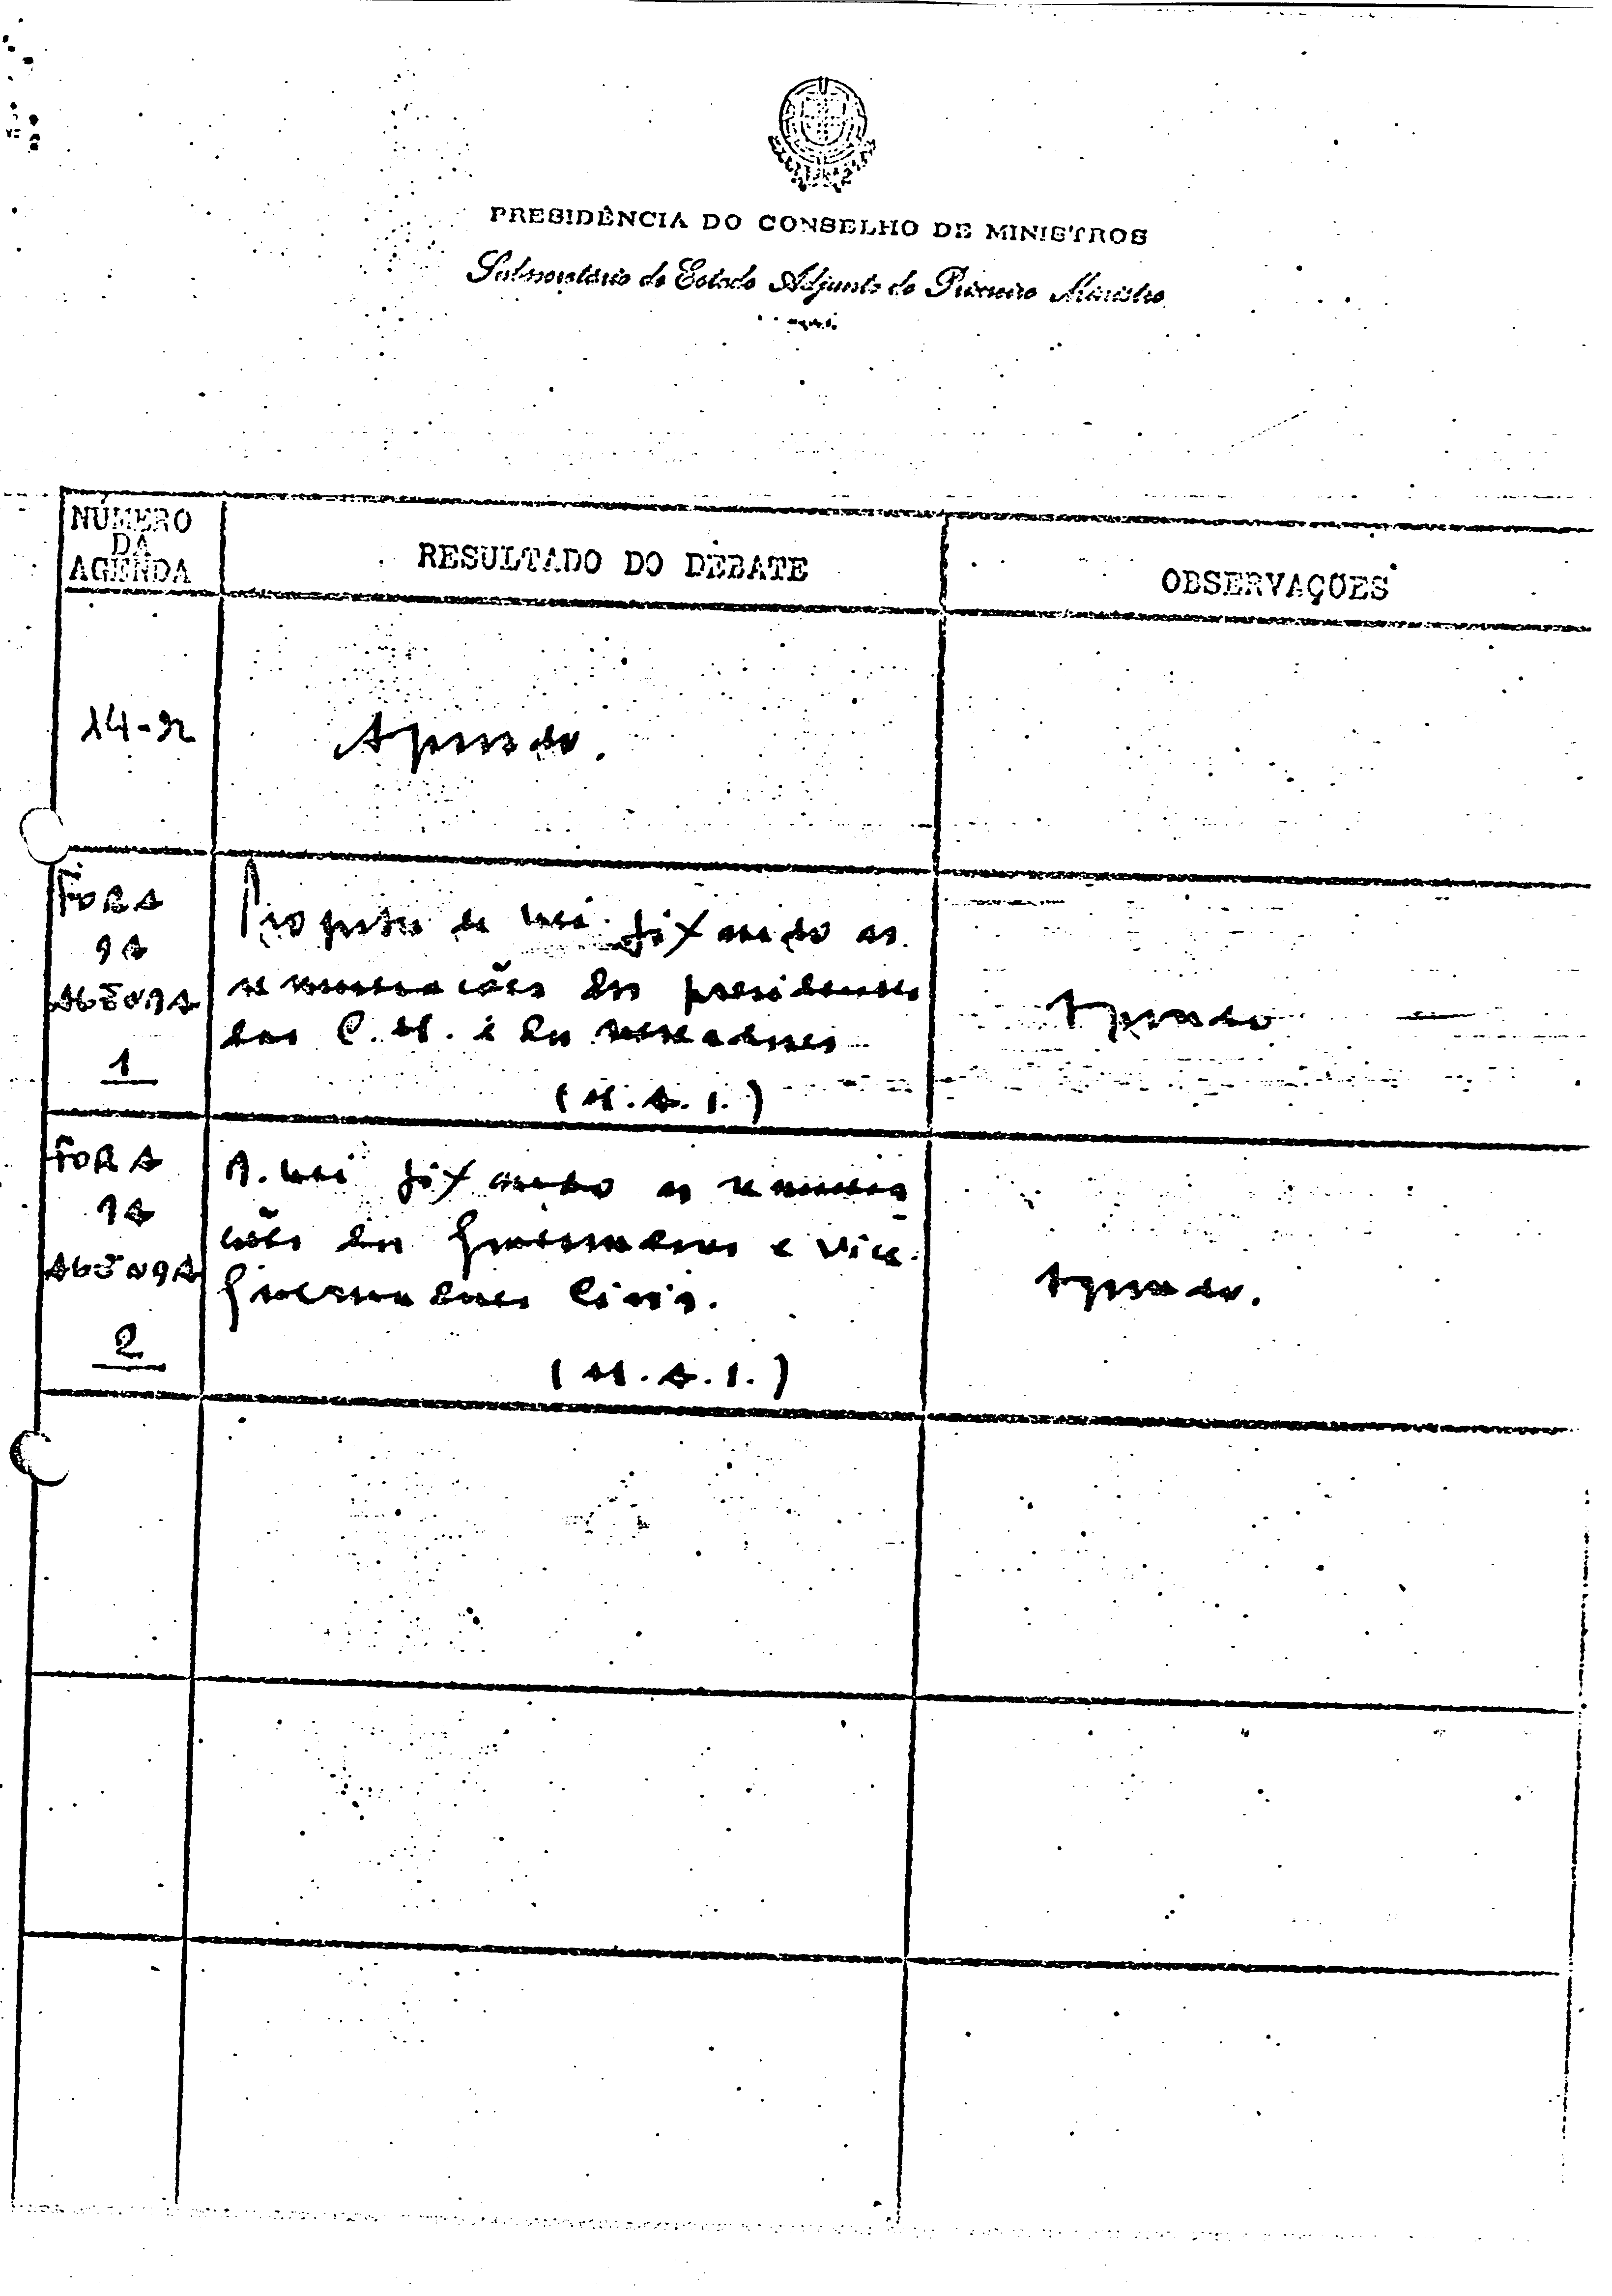 PRESIDÊNCIA DO CONSELHO DE MINISTROS
Subsecretário de Estado Adjunto do Primeiro Ministro
NÚMERO
DA
AGENDA
RESULTADO DO DEBATE
OBSERVAÇÕES
14-92
Aprovado.
FORA
DA
AGENDA
1
Proposta de Lei fixando as
remunerações dos presidentes
das C. M. e dos vereadores
(M.A.I.)
Aprovado
FORA
DA
AGENDA
2
P. Lei fixando as remunera
ções dos Governadores e Vice-
Governadores Civis.
(M.A.I.)
Aprovado.